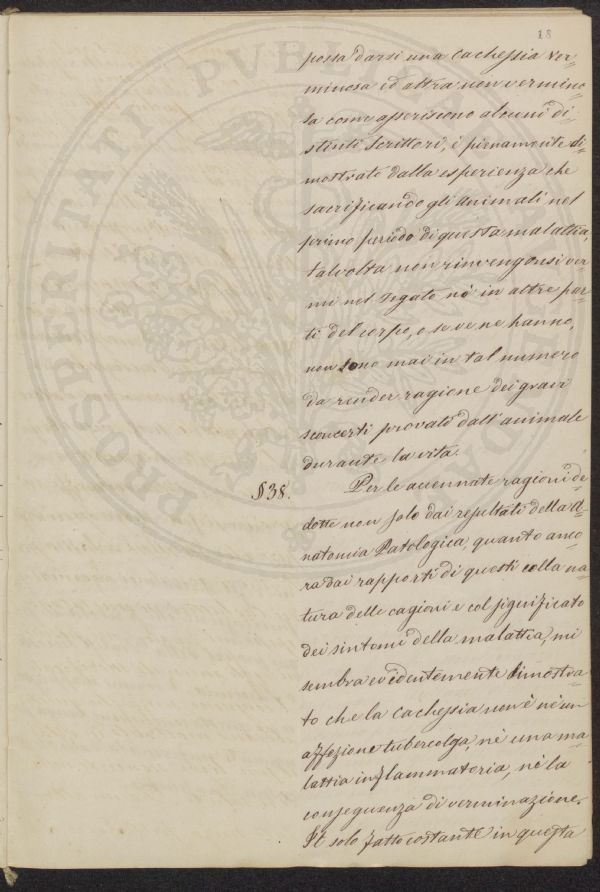 18
possa darsi una Cachessia ver=
minosa ed altra non vermino=
sa come asseriscono alcuni di=
stinti Scrittori, è pienamente di=
mostrato dalla esperienza che
sacrificando gli animali nel
primo periodo di questa malattia,
talvolta non rinvengonsi ver=
mi nel Fegato nè in altre par=
ti del corpo, o se ve ne hanno,
non sono mai in tal numero
da render ragione dei gravi
sconcerti provati dall'animale
durante la vita.
§38. Per le accennate ragioni de=
dotte non solo dai resultati della A=
natomia Patologica, quanto anco=
ra dai rapporti di questi colla na=
tura delle cagioni e col significato
dei sintomi della malattia, mi
sembra evidentemente dimostra=
to che la Cachessia non è nè un
affezione tubercolosa, nè una ma=
lattia inflammatoria, nè la
conseguenza di verminazione.
Il solo fatto costante in questa
PROSPERITATI PVBLICAE